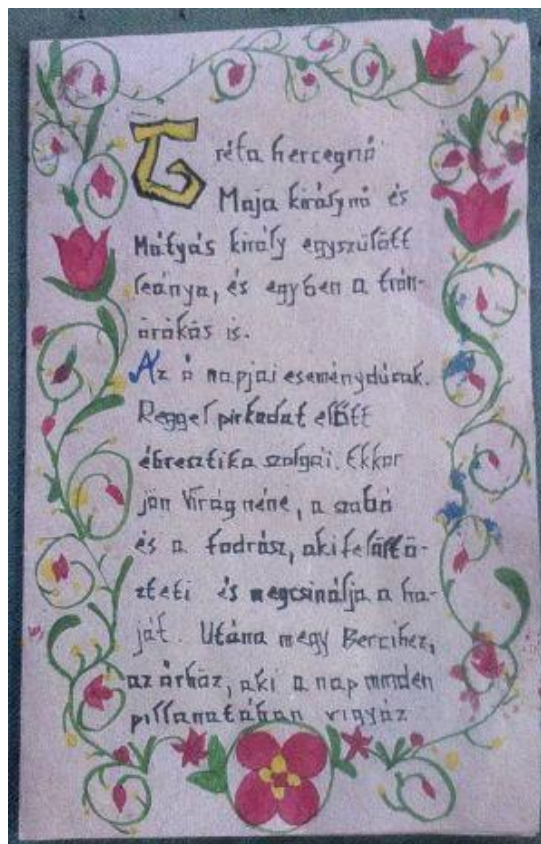 Gréta hercegnő
Maja királynő és
Mátyás király egyszülött
leánya, és egyben a trón-
örökös is.
Az ő napjai eseménydúsak.
Reggel pirkadat előtt
ébresztika szolgái. Ekkor
jön Virág néne, a szabó
és a fodrász, aki felöltö-
zteti és megcsinálja a ha-
ját. Utána megy Bercihez,
az őrhöz, aki a nap minden
pillanatában vigyáz